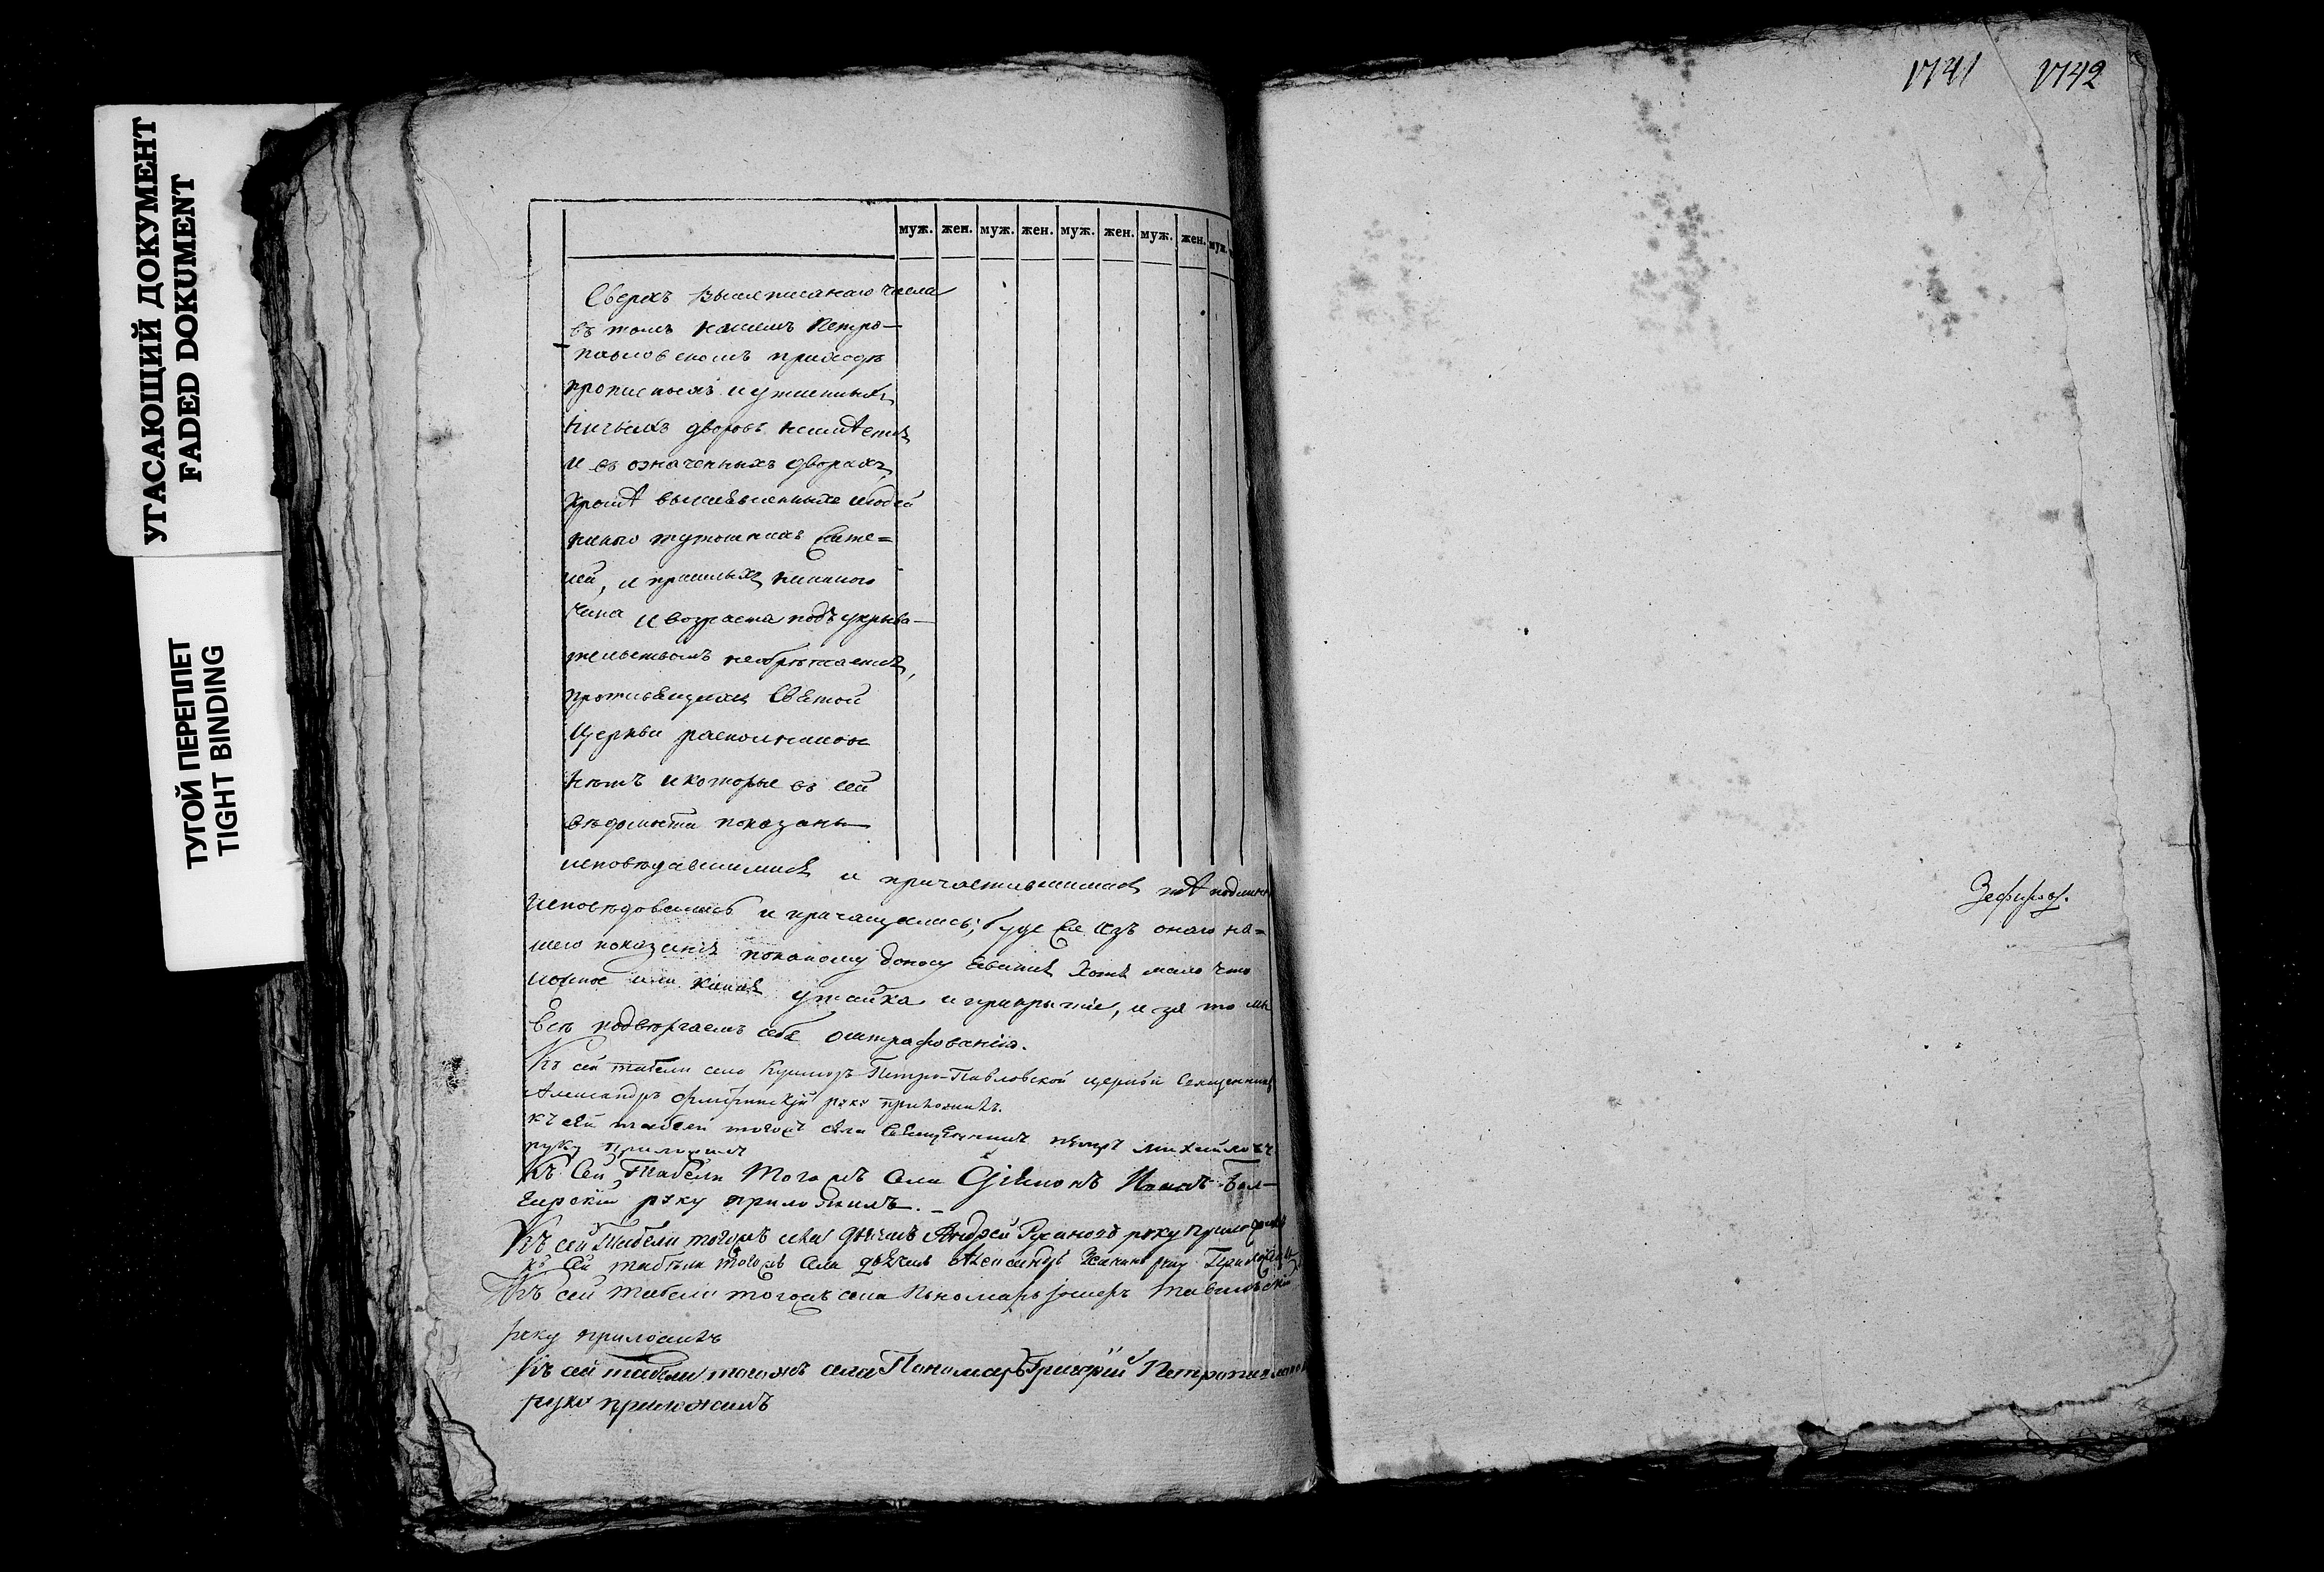 УГАСАЮЩИЙ ДОКУМЕНТ
FADED DOKUMENT
ТУГОЙ ПЕРЕПЛЕТ
TIGHT BINDING
муж. жен. муж. жен. муж. жен. муж. жен. муж.
Сверхъ вышеписанаго числа
въ томъ нашемъ Петро-
павловскомъ приходѣ
прописныхъ и утаенныхъ
ничьихъ дворовъ
и въ означенныхъ дворахъ
кромѣ людей
тутошнихъ жите=
лей, и пришлыхъ никакого
чина и возраста подъ укрыва-
тельствомъ
противящихся Святой
Церкви
нѣтъ и которые въ сей
вѣдомости показаны
исповѣдавшимися и причастившимися тѣ
исповѣдовались и причащались; буде же изъ онаго на=
шего показания по какому доносу явится хотя мало что
ложное или какая утайка и прикрытіе, и за то мы
всѣ подвергаемъ себя оштрафованію.
Къ сей табели села Петро-Павловской церкви Священникъ
Александръ руку приложилъ.
къ сей табели тогожъ села Священникъ Петръ Михайловъ
руку приложилъ
Къ сей Табели Тогожъ Села Діяконъ
руку приложилъ.
Къ сей Табели тогожъ села дьячекъ Андрей Русановъ руку приложилъ
къ сей табели тогожъ села дьячекъ Александръ руку Приложилъ
Къ сей табели тогожъ села Пономарь
руку приложилъ
Къ сей табели тогожъ села Пономарь Григорій
руку приложилъ
1741 1742
Зефировъ.